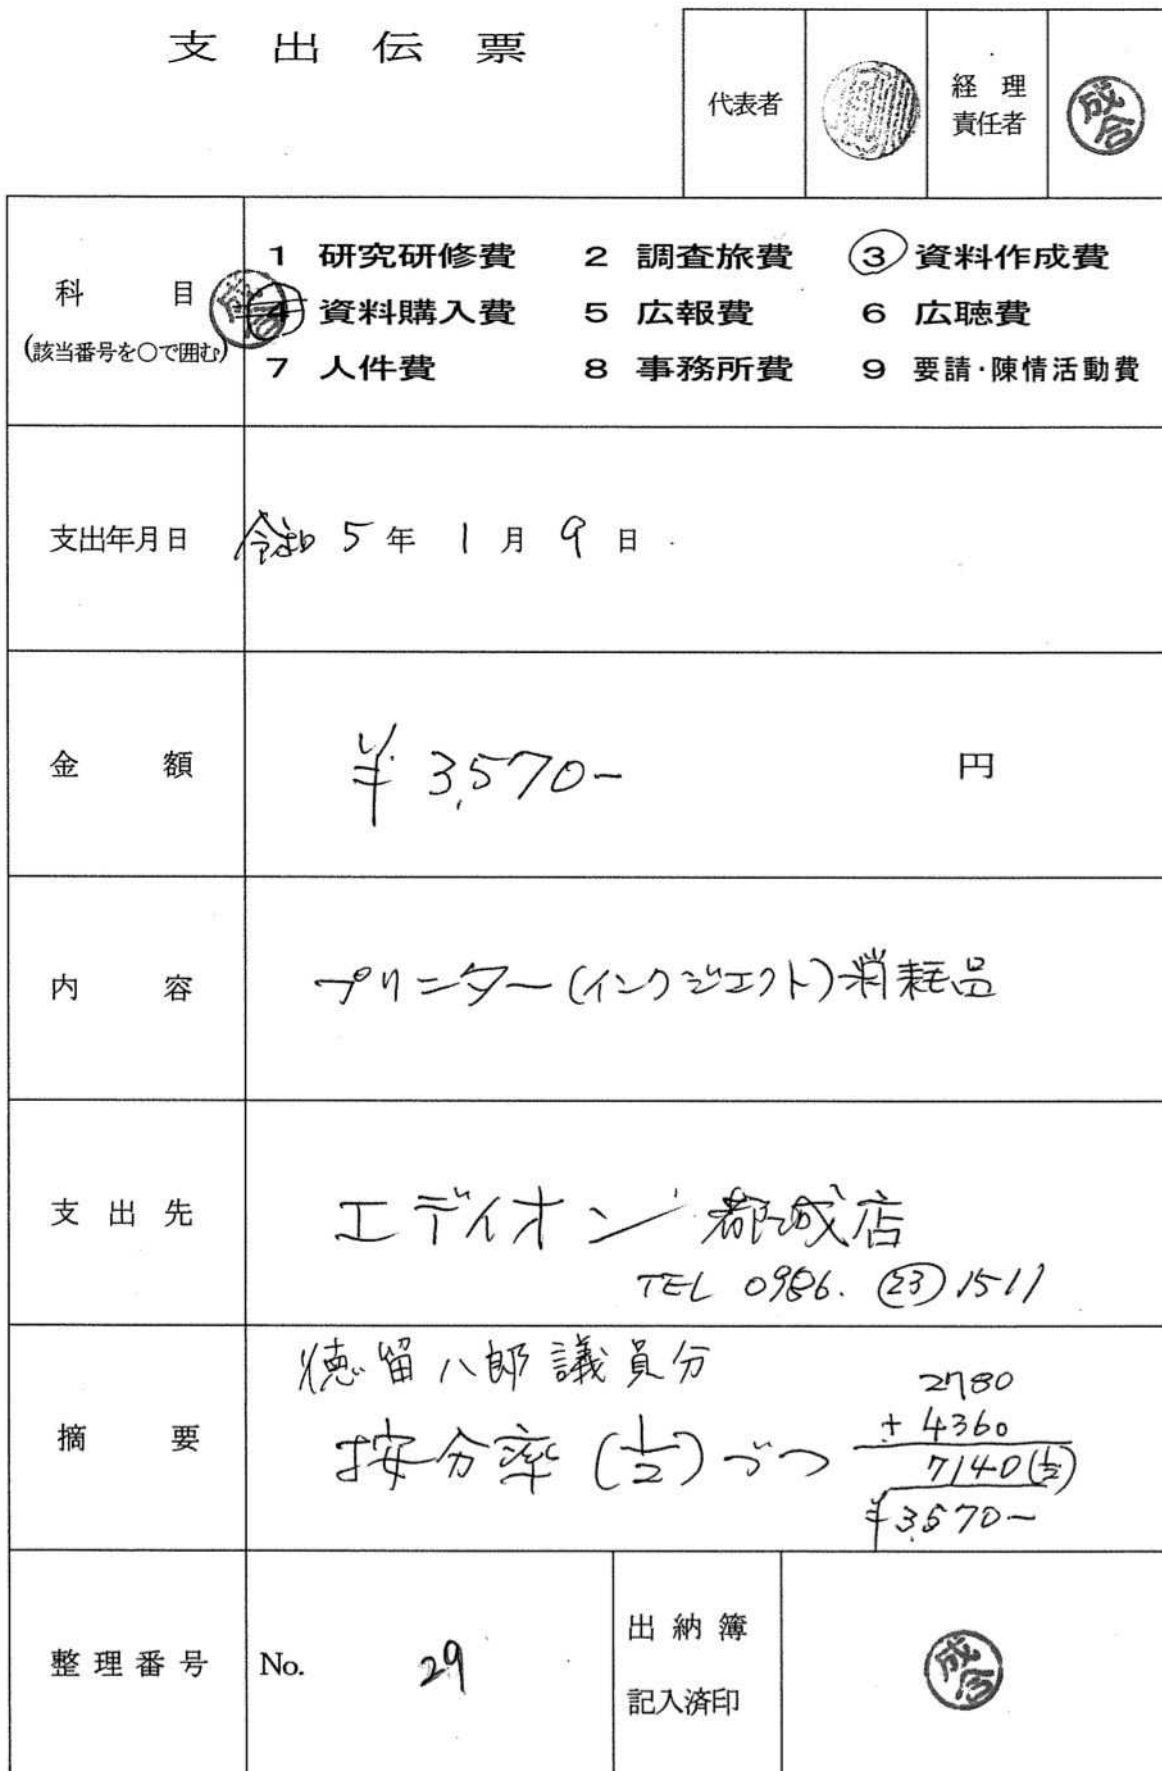 支出伝票
代表者
経理
責任者
成合
科目
(該当番号を○で囲む)
1 研究研修費 2 調査旅費 3 資料作成費
4 資料購入費 5 広報費 6 広聴費
7 人件費 8 事務所費 9 要請・陳情活動費
支出年月日 令和 5 年 1 月 9 日
金額 ¥3,570- 円
内容 プリンター(インクジェクト)消耗品
支出先 エディオン 都城店
TEL 0986. 23 1511
摘要
徳留八郎議員分
按分率(1/2)づつ
2780
+ 4360
7140(1/2)
¥3,570-
整理番号 No. 29
出納簿
記入済印
成合